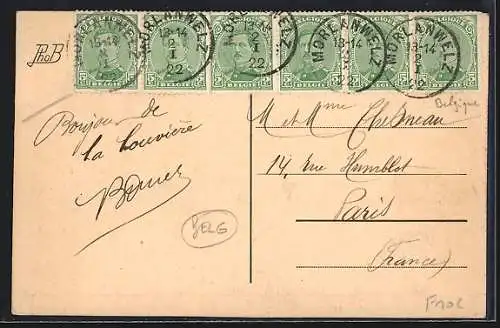 PhoB
MORLANWELZ
13-14
2
I
22
BELGIQUE
5c 5c
BELGIË
Belgique
Bonjour de
La Louvière
M et Mme
14, rue Humblot
Paris
(France)
BELG